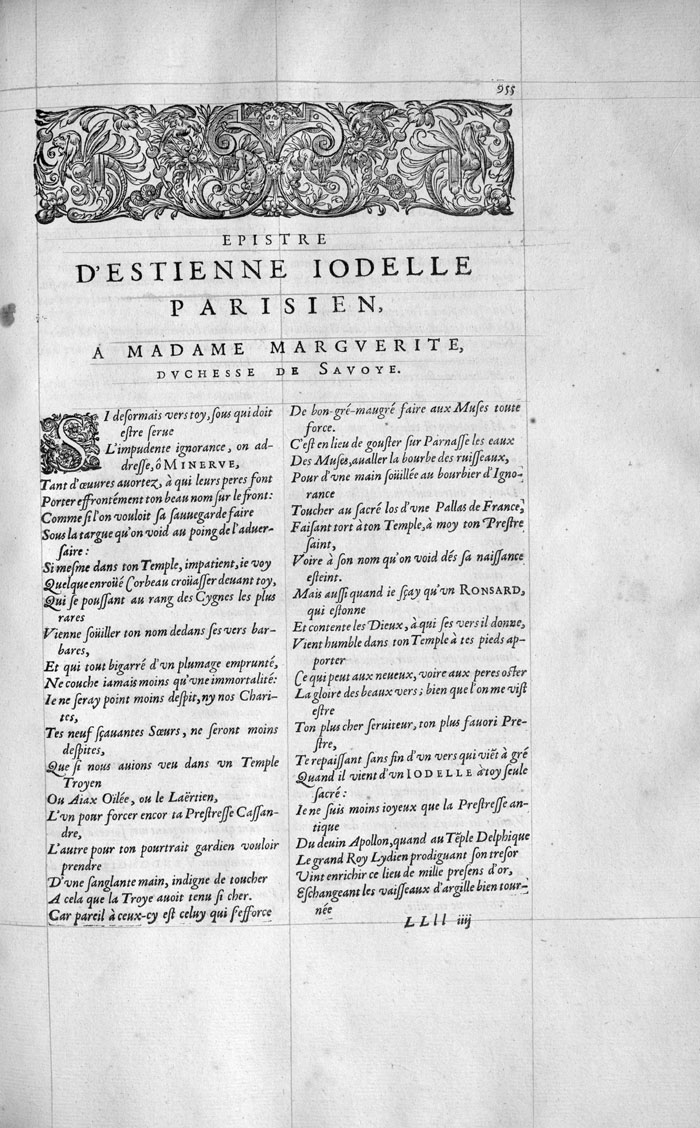 955
EPISTRE
D'ESTIENNE IODELLE
PARISIEN,
A MADAME MARGVERITE,
DVCHESSE DE SAVOYE.
SI desormais vers toy, sous qui doit
estre serue
L'impudente ignorance, on ad-
dresse, ô MINERVE,
Tant d'œuures auortez, à qui leurs peres font
Porter effrontément ton beau nom sur le front:
Comme si l'on vouloit sa sauuegarde faire
Sous la targue qu'on void au poing de l'aduer-
saire:
Si mesme dans ton Temple, impatient, ie voy
Quelque enroüé Corbeau croüasser deuant toy,
Qui se poussant au rang des Cygnes les plus
rares
Vienne soüiller ton nom dedans ses vers bar-
bares,
Et qui tout bigarré d'vn plumage emprunté,
Ne couche iamais moins qu'vne immortalité:
Ie ne seray point moins despit, ny nos Chari-
tes,
Tes neuf sçauantes Sœurs, ne seront moins
despites,
Que si nous auions veu dans vn Temple
Troyen
Ou Aiax Oïlée, ou le Laërtien,
L'vn pour forcer encor ta Prestresse Cassan-
dre,
L'autre pour ton pourtrait gardien vouloir
prendre
D'vne sanglante main, indigne de toucher
A cela que la Troye auoit tenu si cher.
Car pareil à ceux-cy est celuy qui s'efforce
De bon-gré-maugré faire aux Muses toute
force.
C'est en lieu de gouster sur Parnasse les eaux
Des Muses, aualler la bourbe des ruisseaux,
Pour d'vne main soüillée au bourbier d'Igno-
rance
Toucher au sacré los d'vne Pallas de France,
Faisant tort à ton Temple, à moy ton Prestre
saint,
Voire à son nom qu'on void dés sa naissance
esteint.
Mais aussi quand ie sçay qu'vn RONSARD,
qui estonne
Et contente les Dieux, à qui ses vers il donne,
Vient humble dans ton Temple à tes pieds ap-
porter
Ce qui peut aux neueux, voire aux peres oster
La gloire des beaux vers; bien que l'on me vist
estre
Ton plus cher seruiteur, ton plus fauori Pre-
stre,
Te repaissant sans fin d'vn vers qui viẽt à gré
Quand il vient d'vn IODELLE à toy seule
sacré:
Ie ne suis moins ioyeux que la Prestresse an-
tique
Du deuin Apollon, quand au Tẽple Delphique
Le grand Roy Lydien prodiguant son tresor
Vint enrichir ce lieu de mille presens d'or,
Eschangeant les vaisseaux d'argille bien tour-
née
LLll iiij